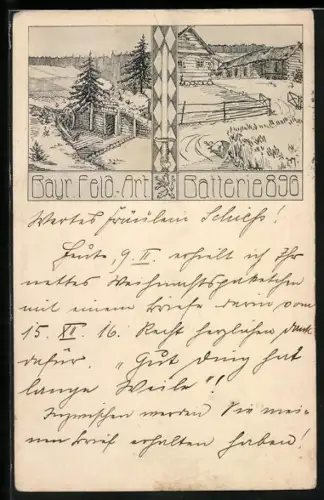 Bayr. Feld-Art Batterie 898
Wertes Fräulein Schiefs!
Heute, 9. II. erhielt ich Ihr
nettes Weihnachtspaketchen
mit einem Briefe darin vom
15. XII. 16. Recht herzlichen Dank
dafür. „Gut Ding hat
lange Weile"!
Inzwischen werden Sie mei-
nen Brief erhalten haben!